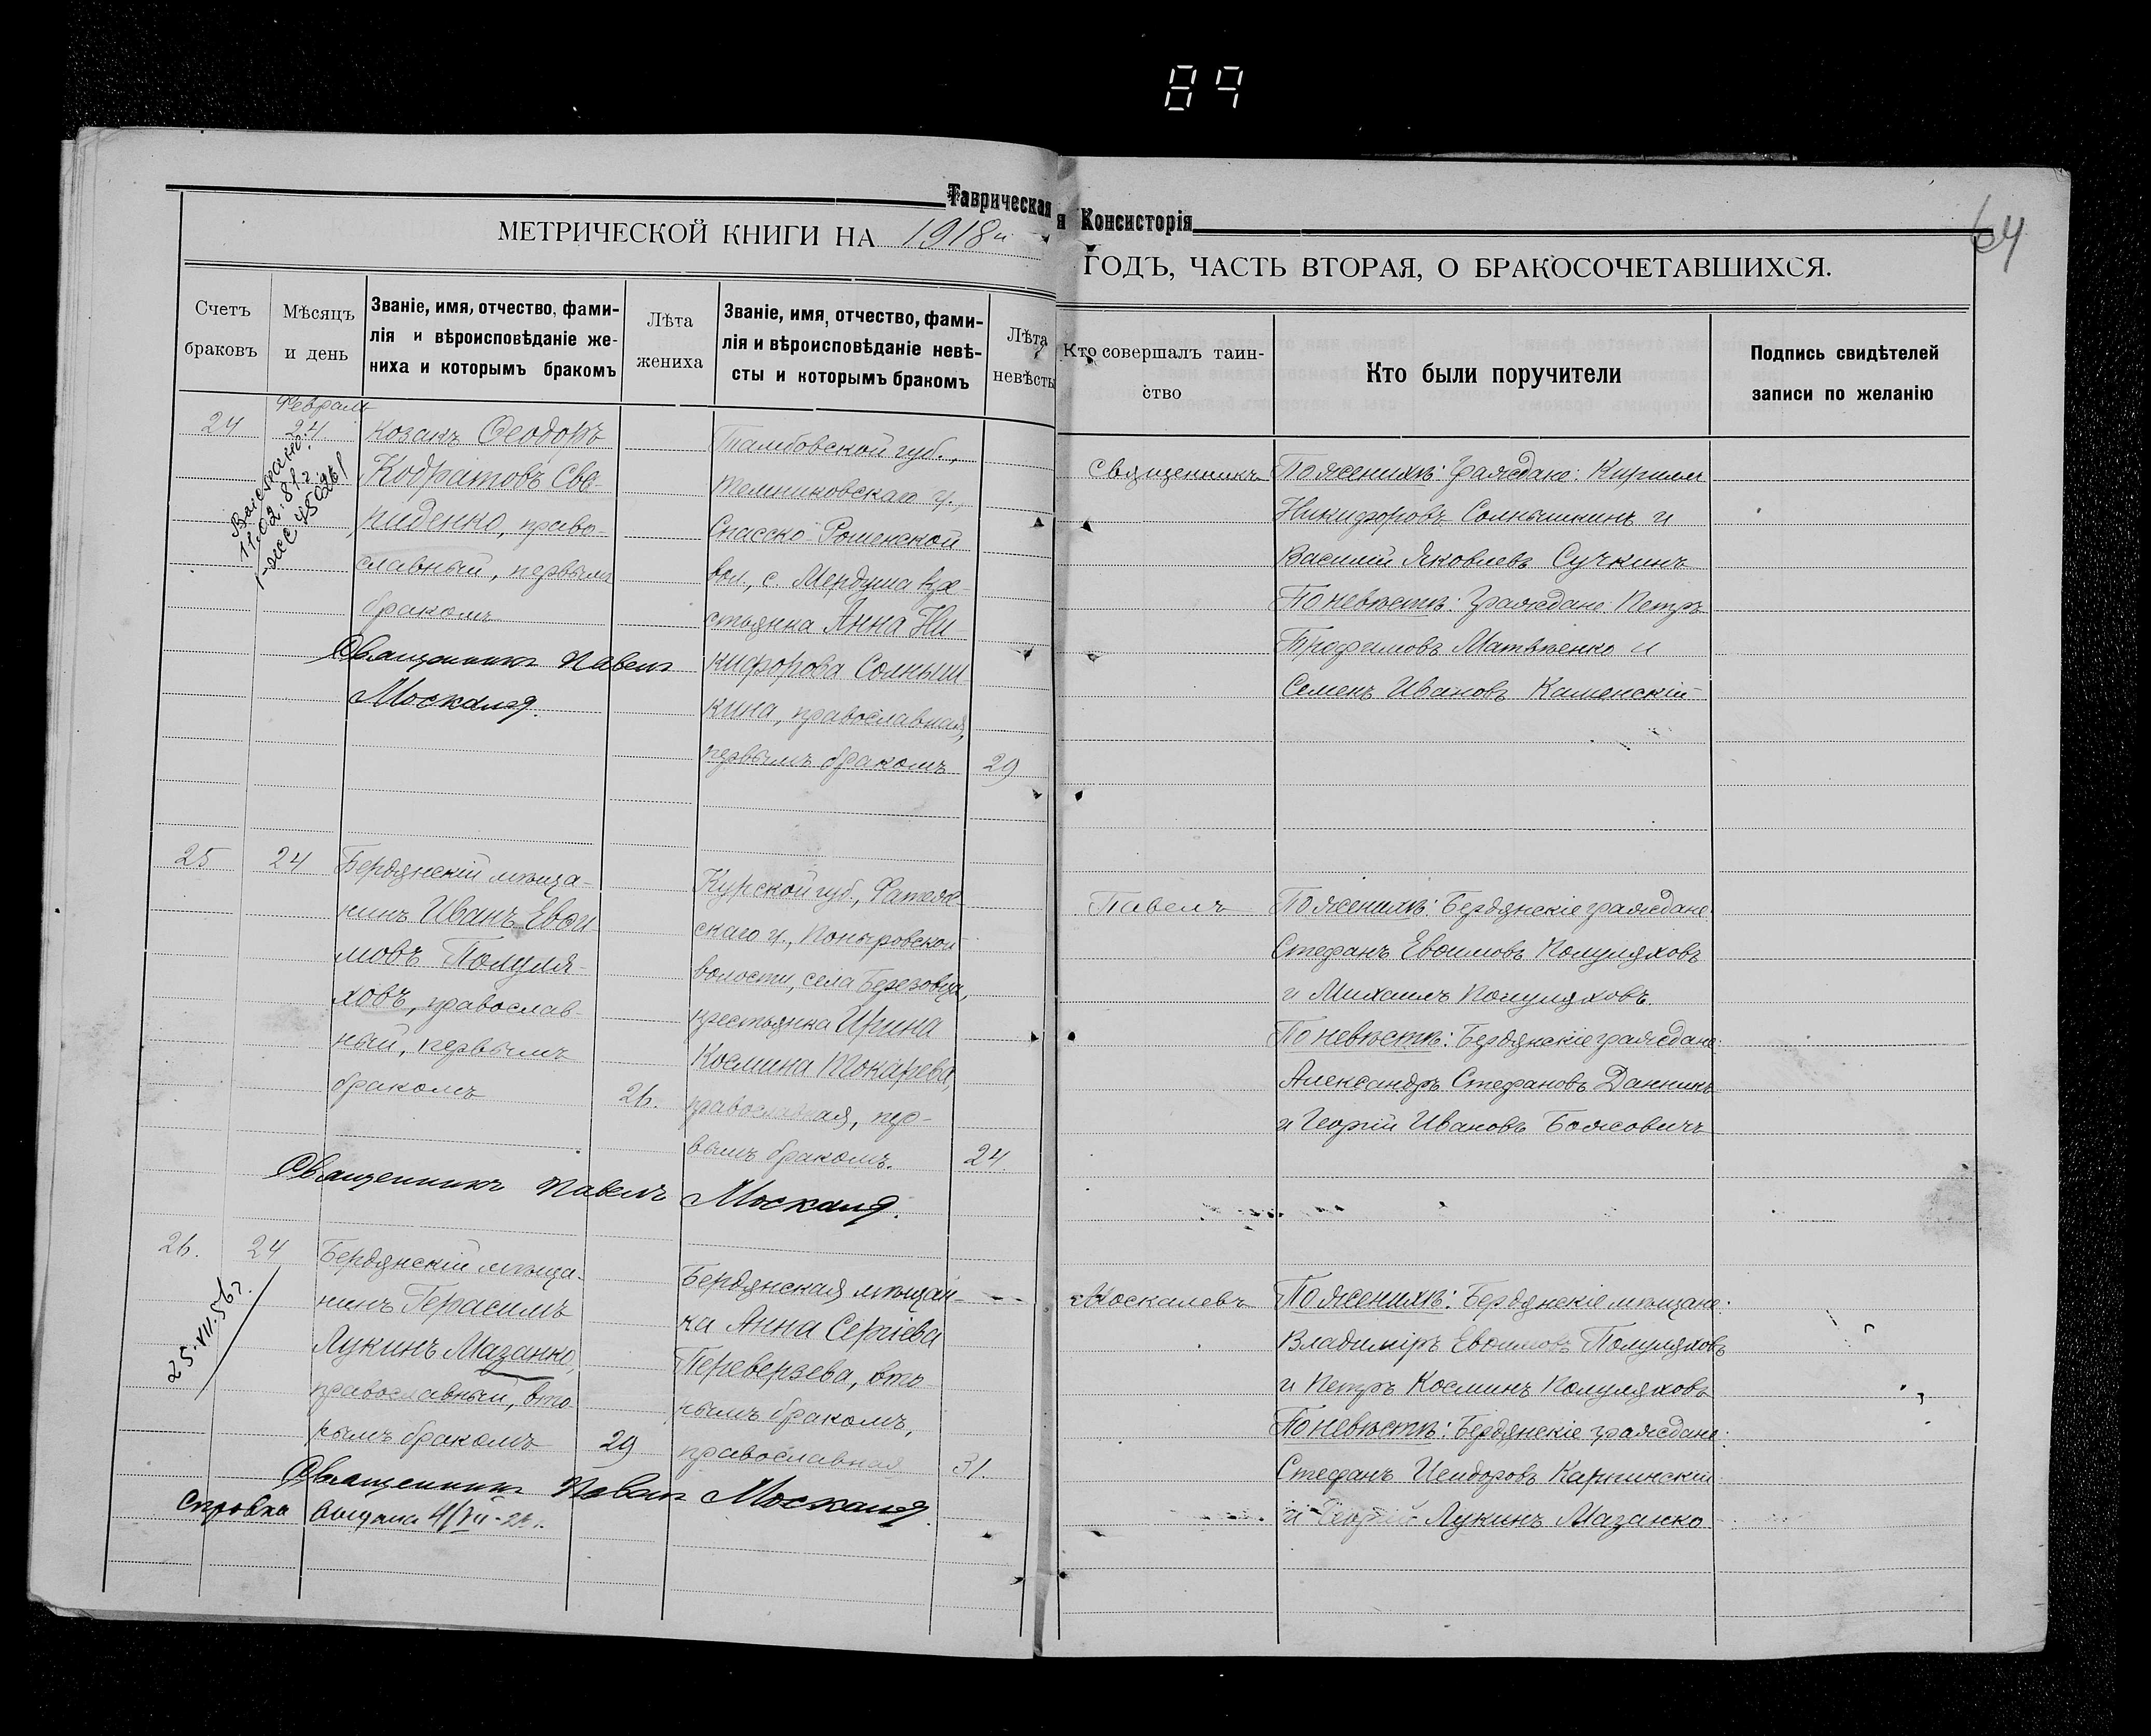 89
Таврическая Консисторія
64
МЕТРИЧЕСКОЙ КНИГИ НА 1918й
ГОДЪ, ЧАСТЬ ВТОРАЯ, О БРАКОСОЧЕТАВШИХСЯ.
Счетъ браковъ
Мѣсяцъ и день
Званіе, имя, отчество, фами-
лія и вѣроисповѣданіе же-
ниха и которымъ бракомъ
Лѣта жениха
Званіе, имя, отчество, фами-
лія и вѣроисповѣданіе невѣ-
сты и которымъ бракомъ
Лѣта невѣсты
Кто совершалъ таин-
ство
Кто были поручители
Подпись свидѣтелей
записи по желанію
Февраль
24
24
козакъ Ѳеодоръ
Кодратовъ Сви-
риденко, право-
славный, первымъ
бракомъ
Священникъ Павелъ
Тамбовской губ.,
Темниковскаго у.,
Спасско
вол., с.
стьянка Анна Ни-
кифорова Солныш-
кина, православная,
первымъ бракомъ
29
Священникъ
По женихѣ: граждане: Кирилл
Никифоровъ Солнышкинъ и
Василій Яковлевъ Сучкинъ
По невѣстѣ: граждане: Петръ
Трофимовъ Матвѣенко и
Семенъ Ивановъ Каменскій
25
24
Бердянскій мѣща-
нинъ Иванъ Евѳи-
мовъ Полуля-
ховъ, православ-
ный, первымъ
бракомъ
26.
Курской губ., Фатеж-
скаго у., Поныровской
волости, села Березовца,
крестьянка Ирина
Космина Токарева,
православная, пер-
вымъ бракомъ.
24.
Священникъ Павелъ
Павелъ
По женихѣ: Бердянскіе граждане:
Стефанъ Евѳимовъ Полуляховъ
и Михаилъ Полуляховъ.
По невѣстѣ: Бердянскіе граждане:
Александръ Стефановъ
и Георгій Ивановъ Божовичъ
26.
24
25.VII.56г.
Бердянскій мѣща-
нинъ Герасимъ
Лукинъ Мазанко,
православный, вто-
рымъ бракомъ
29
Бердянская мѣщан-
ка Анна Сергіева
Переверзева, вто-
рымъ бракомъ,
православная
31.
Священникъ Павелъ
Справка выдана
Москалевъ
По женихѣ: Бердянскіе мѣщане:
Владиміръ Евѳимовъ Полуляховъ
и Петръ Косминъ Полуляховъ
По невѣстѣ: Бердянскіе граждане:
Стефанъ Исидоровъ Карпинскій
и Георгій Лукинъ Мазанко